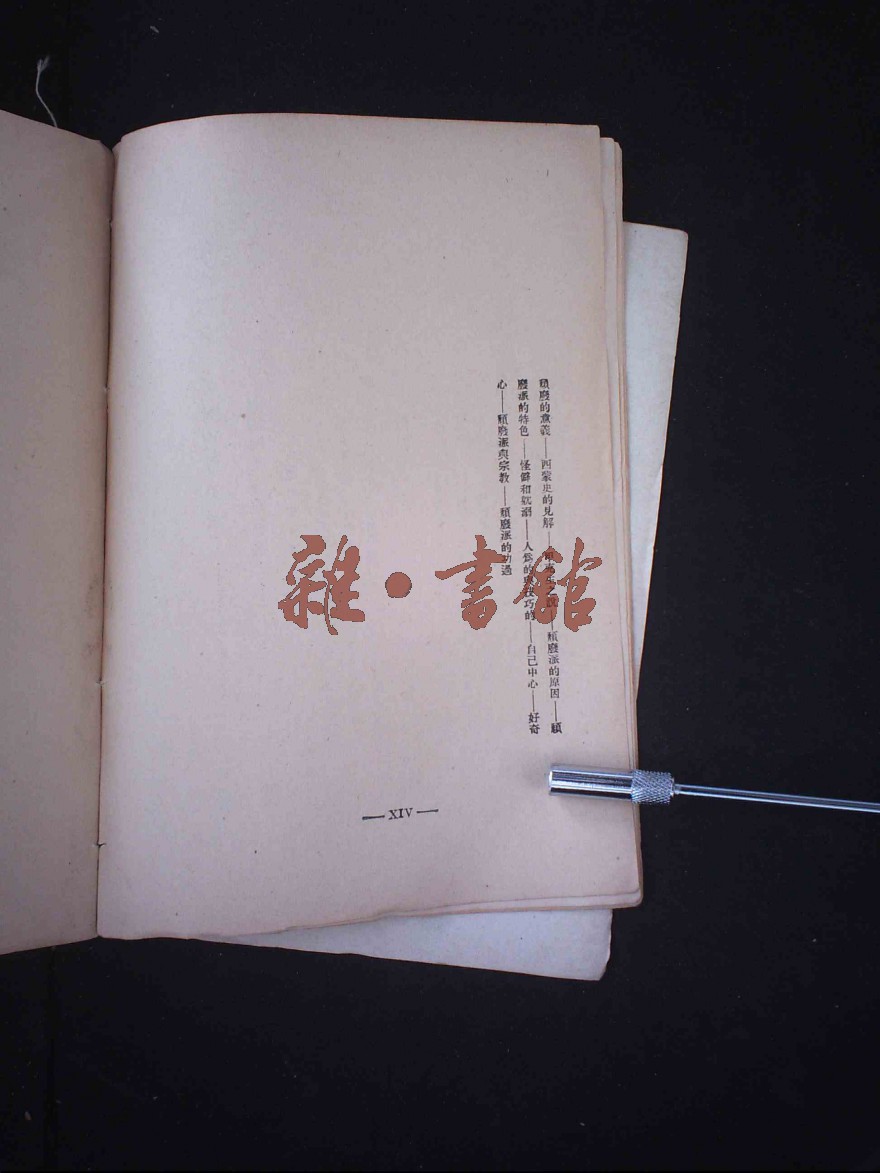 頹廢的意義——西蒙史的見解——　　　　　——頹廢派的原因——頹
廢派的特色——怪僻和耽溺——人爲的與技巧的——自己中心——好奇
心——頹廢派與宗教——頹廢派的功過
— XIV —
雜·書館